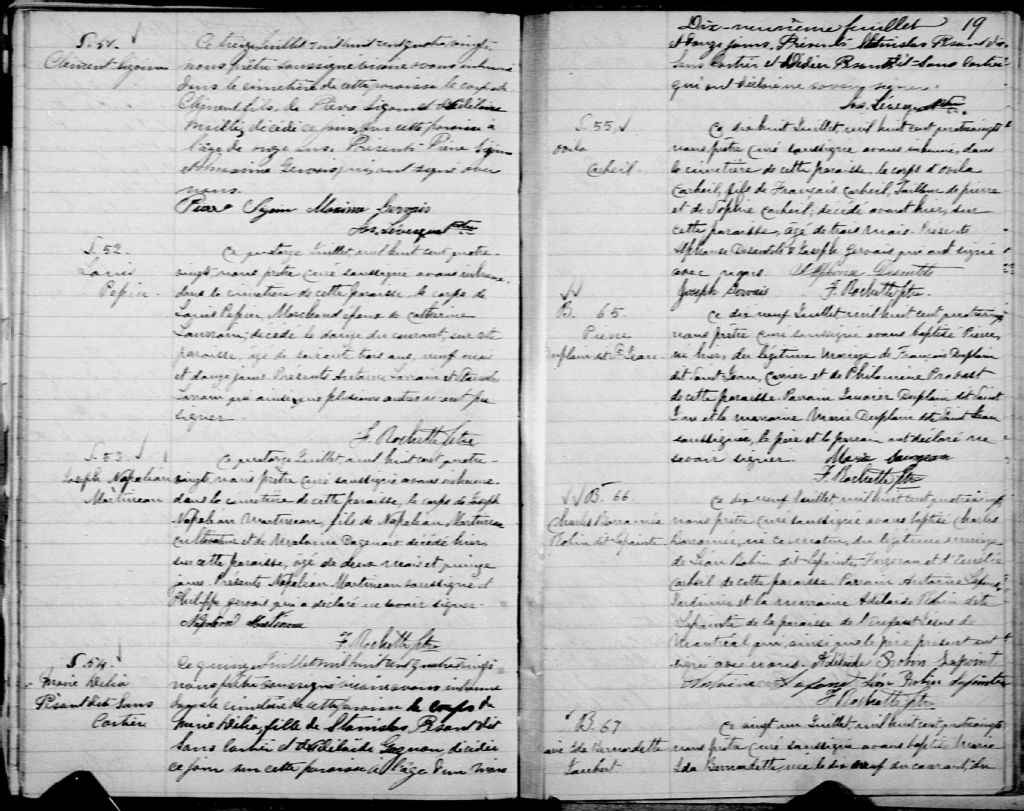 S. 51.
Clément
Ce treize juillet mil huit cent quatre vingt
nous prêtre soussigné vicaire avons inhumé
dans le cimetière de cette paroisse le corps de
Clément fils de Pierre et
décédé ce jour, sur cette paroisse à
l'âge de onze ans. Présents Pierre
et Gervais, qui ont signé avec
nous.
Pierre Maxime Gervais
Jos. Levesque Ptre
S. 52.
Louis
Pepin
Ce quatorze Juillet, mil huit cent quatre-
vingt, nous prêtre curé soussigné avons inhumé,
dans le cimetière de cette paroisse, le corps de
Louis Pepin, Marchand époux de Catherine
décédé le douze du courant, sur cette
paroisse, âgé de soixante trois ans, neuf mois
et douze jours. Présents Antoine et
qui ainsi que plusieurs autres n'ont pu
signer.
F. Rochette Ptre
S. 53.
Joseph Napoléon
Martineau
Ce quatorze Juillet, mil huit cent quatre-
vingt, nous prêtre curé soussigné avons inhumé
dans le cimetière de cette paroisse, le corps de Joseph
Napoléon Martineau, fils de Napoléon Martineau
cultivateur et de Dagenais décédé hier,
sur cette paroisse, âgé de deux mois et quinze
jours. Présents Napoléon Martineau soussigné et
Philippe Gervais qui a déclaré ne savoir signer.
Napoléon Martineau
F. Rochette Ptre
S. 54.
Marie Délia
Pésant dit Sans
Cartier
Ce quinze Juillet mil huit cent quatre vingt
nous prêtre soussigné vicaire avons inhumé
dans le cimetière de cette paroisse le corps de
Marie Délia, fille de Stanislas Pésant dit
Sans Cartier et d'Adelaide Gagnon, décédée
ce jour sur cette paroisse à l'âge d'un mois
Dix-neuvième feuillet 19
et onze jours. Présents Stanislas Pésant dit
Sans Cartier et Didier Pésant dit Sans Cartier
qui ont déclaré ne savoir signer.
Jos. Levesque Ptre
S. 55.
Ovila
Corbeil.
Ce dix huit Juillet, mil huit cent quatrevingt
nous prêtre curé soussigné avons inhumé, dans
le cimetière de cette paroisse, le corps d'Ovila
Corbeil, fils de François Corbeil, Tailleur de pierre
et de Sophie Corbeil, décédé avant hier, sur
cette paroisse, âgé de trois mois. Présents
Alphonse & Joseph Gervais qui ont signé
avec nous. Alphonse
Joseph Gervais F. Rochette Ptre.
B. 65.
Pierre
Duplain dit St Jean
Ce dix neuf Juillet mil huit cent quatrevingt
nous prêtre curé soussigné avons baptisé Pierre,
né hier, du légitime mariage de François Duplain
dit Saint Jean, carrier et de Philomène Probost
de cette paroisse. Parrain Janvier Duplain dit Saint
Jean et la marraine Marie Duplain dit Saint Jean
soussignée, le père et le parrain ont déclaré ne
savoir signer. Marie
F. Rochette Ptr
B. 66
Charles Borromée
Robin dit Lapointe
Ce dix neuf Juillet mil huit cent quatrevingt
nous prêtre curé soussigné avons baptisé Charles
Borromée, né ce matin, du légitime mariage
de Léon Robin dit Lapointe Forgeron et d'
Corbeil de cette paroisse. Parrain Antoine
Jardinier et la marraine Adelaide Robin dite
Lapointe de la paroisse de l'Enfant Jésus de
Montréal qui, ainsi que le père présent ont
signé avec nous. Adélaide Robin Lapoint
Antoine Léon Robin Lapointe
F. Rochette Ptr
B. 67
Marie Ida Bernadette
Jaubert
Ce vingt un Juillet, mil huit cent quatrevingts
nous prêtre curé soussigné avons baptisé Marie
Ida Bernadette, née le dix neuf du courant, du